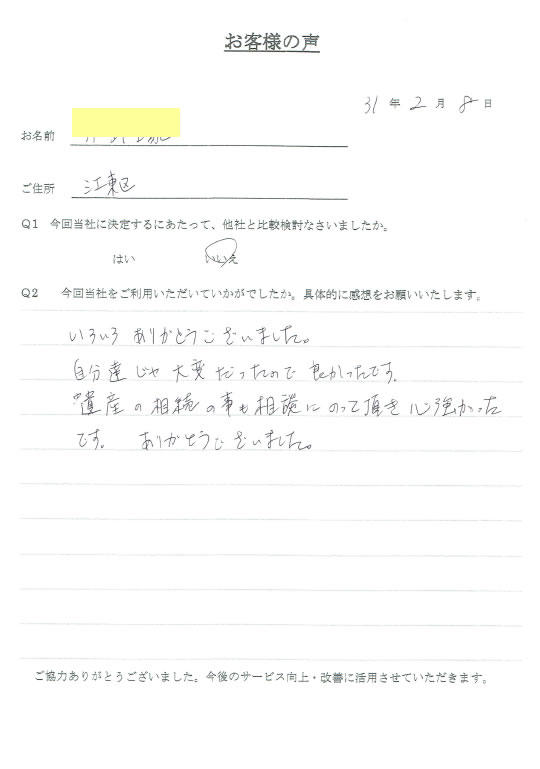 お客様の声
31 年 2 月 8 日
お名前
ご住所 江東区
Q1 今回当社に決定するにあたって、他社と比較検討なさいましたか。
はい いいえ
Q2 今回当社をご利用いただいていかがでしたか。具体的に感想をお願いいたします。
いろいろ ありがとうございました。
自分達じゃ 大変だったので 良かったです。
遺産の相続の事も相談にのって頂き心強かった
です。 ありがとうございました。
ご協力ありがとうございました。今後のサービス向上・改善に活用させていただきます。